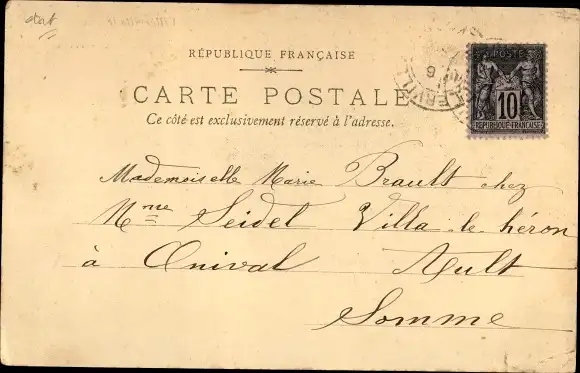 RÉPUBLIQUE FRANÇAISE
CARTE POSTALE
Ce côté est exclusivement réservé à l'adresse.
POSTE
10
RÉPUBLIQUE FRANÇAISE
Mademoiselle Marie Brault chez
Mme Seidel Villa le héron
à Onival Ault
Somme